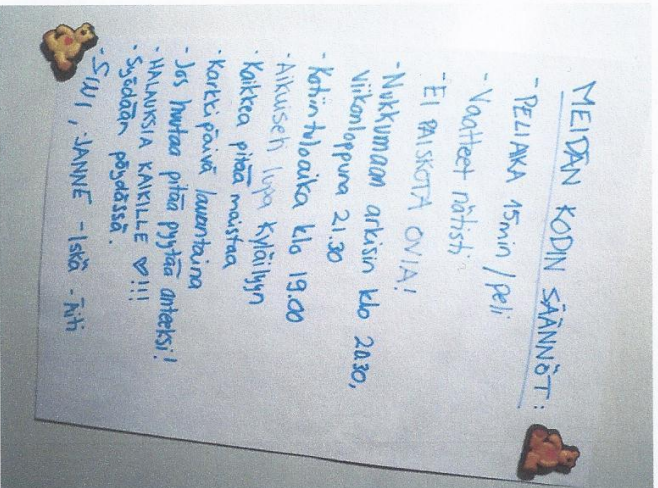 MEIDÄN KODIN SÄÄNNÖT:
- PELIAIKA 15min / peli
- Vaatteet nätisti
- EI PAISKOTA OVIA!
- Nukkumaan arkisin klo 20.30,
viikonloppuna 21.30
- Kotiintuloaika klo 19.00
- Aikuisen lupa kyläilyyn
- Kaikkea pitää maistaa
- Karkkipäivä lauantaina
- Jos huutaa pitää pyytää anteeksi!
- HALAUKSIA KAIKILLE ♡!!!
- Syödään pöydässä.
- SUVI, JANNE - Iskä - Äiti